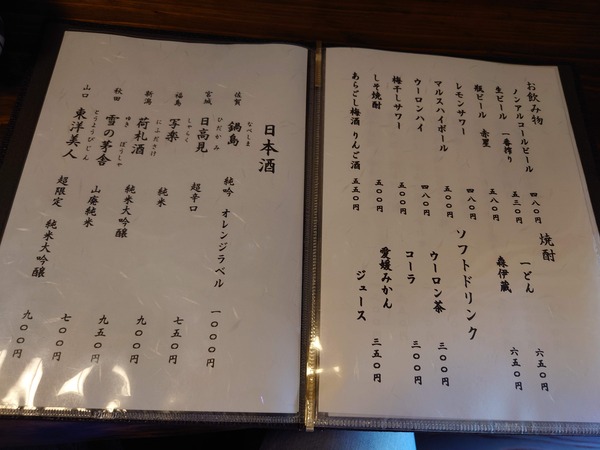 お飲み物
ノンアルコールビール 四八〇円
生ビール 一番搾り 五三〇円
瓶ビール 赤星 五八〇円
レモンサワー 四八〇円
マルスハイボール 五〇〇円
ウーロンハイ 四八〇円
梅干しサワー 五五〇円
しそ焼酎 五〇〇円
あらごし梅酒 りんご酒 五五〇円
焼酎
一どん 六五〇円
森伊蔵 六五〇円
ソフトドリンク
ウーロン茶 三〇〇円
コーラ 三〇〇円
愛媛みかん
ジュース 三五〇円
日本酒
なべしま
佐賀 鍋島 純吟 オレンジラベル 一〇〇〇円
ひだかみ
宮城 日高見 超辛口 七五〇円
しゃらく
福島 写楽 純米 九〇〇円
にふださけ
新潟 荷札酒 純米大吟醸 九五〇円
ゆき ぼうしゃ
秋田 雪の茅舎 山廃純米 七〇〇円
とうようびじん
山口 東洋美人 超限定 純米大吟醸 九〇〇円